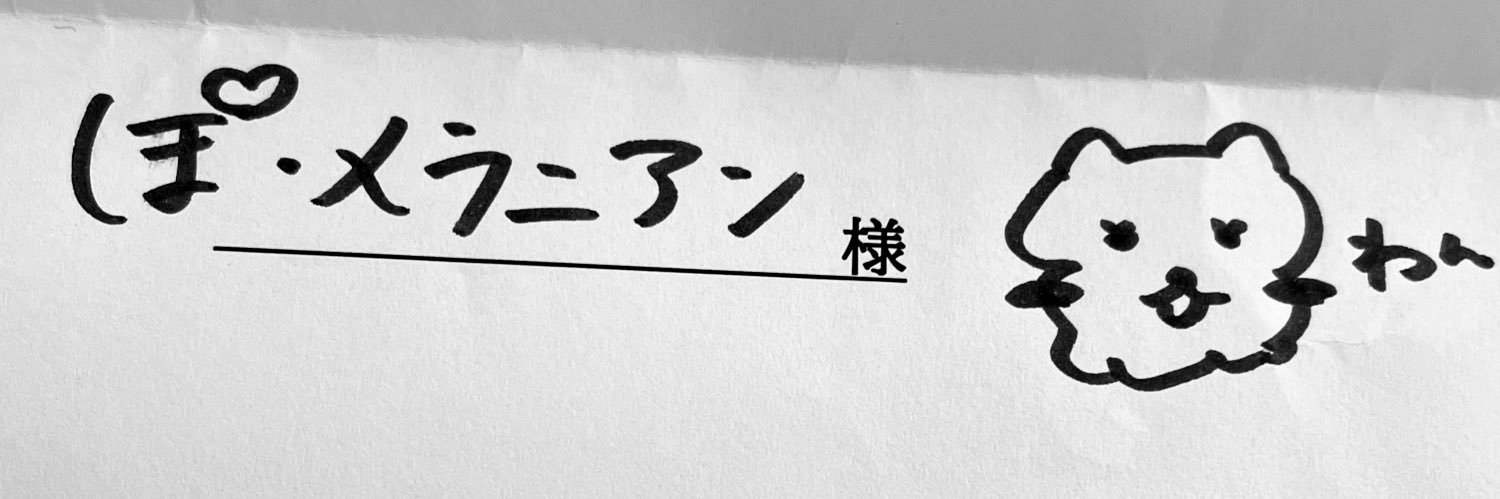 ぽ・メラニアン 様
わん